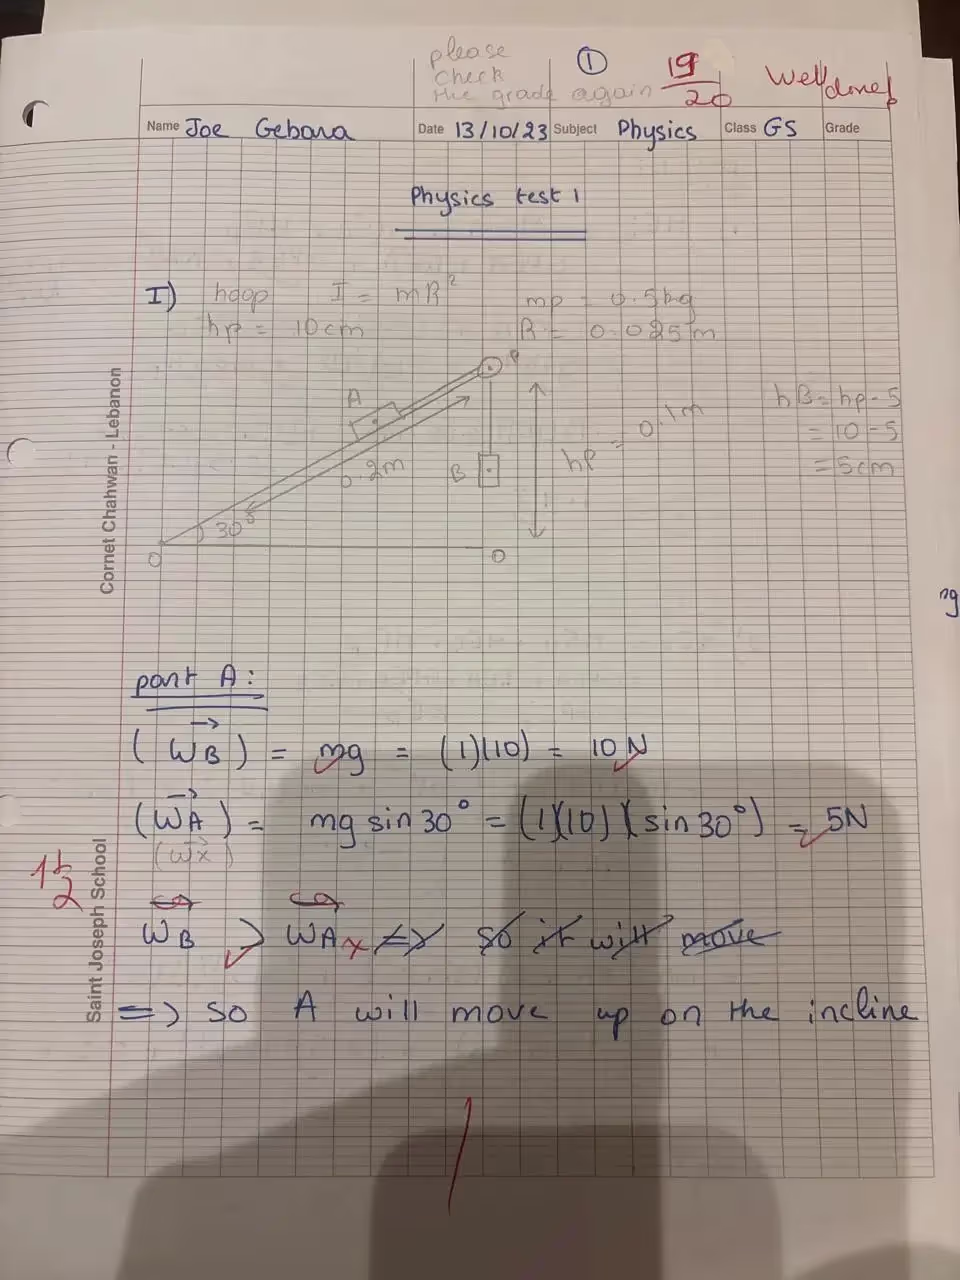 please
check
the grade again
①
19/20
Well done!
Name Joe Gebara Date 13/10/23 Subject Physics Class GS Grade
Physics test 1
I) hoop I = mR² mp = 0.5kg
hp = 10cm R = 0.025m
P
A
0.2m
B
hp = 0.1m
30°
O
O
hB = hp - 5
= 10 - 5
= 5cm
Cornet Chahwan - Lebanon
Saint Joseph School
part A:
(WB) = mg = (1)(10) = 10 N
(WA) = mg sin 30° = (1)(10)(sin 30°) = 5N
(Wx)
1 1/2
WB > WAx <=> so it will move
=> so A will move up on the incline